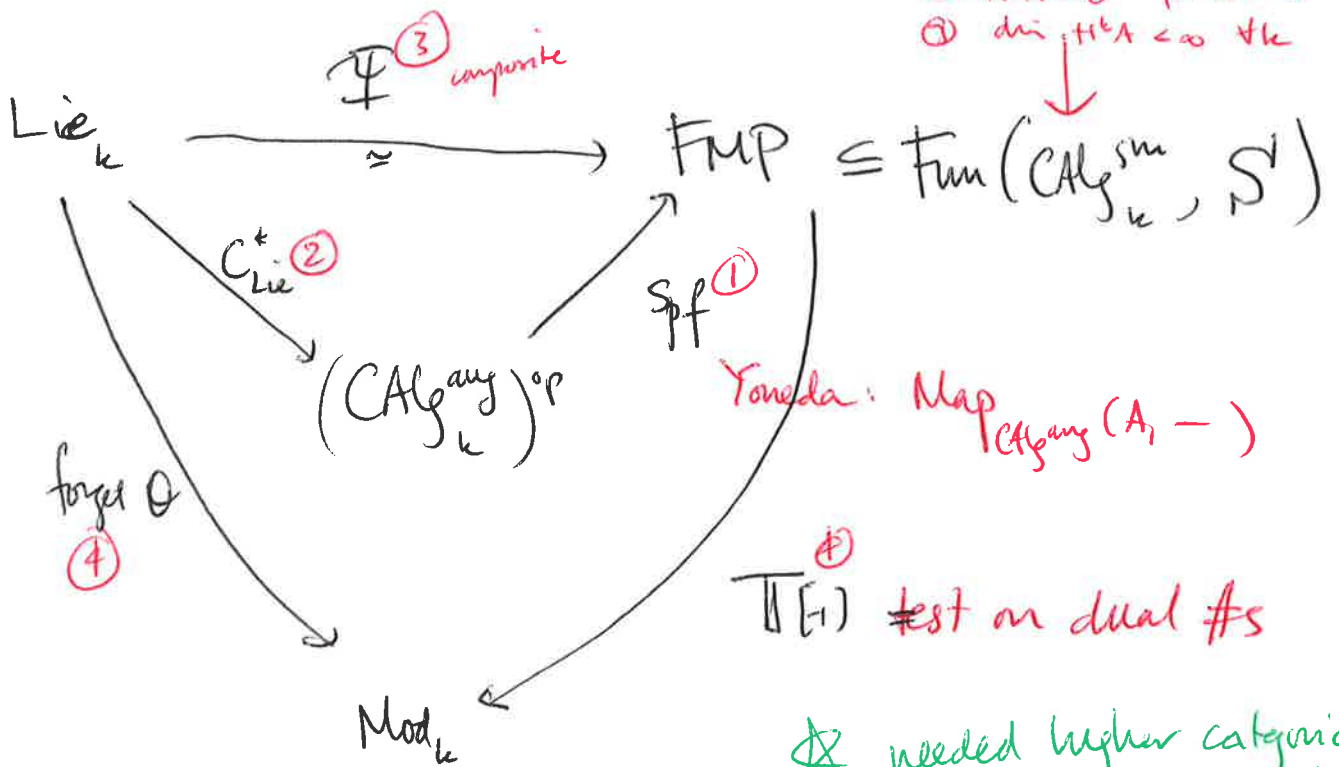 ① dim H^k A < ∞ ∀k
Ψ ③ composite
Lie_k ≃ FMP ⊆ Fun(CAlg_k^{sm}, S)
C^*_{Lie} ②
Spf ①
(CAlg_k^{aug})^{op}
Yoneda: Map_{CAlg^{aug}}(A, −)
forget θ
④
④
T[-1] = test on dual #s
Mod_k
needed higher categoric